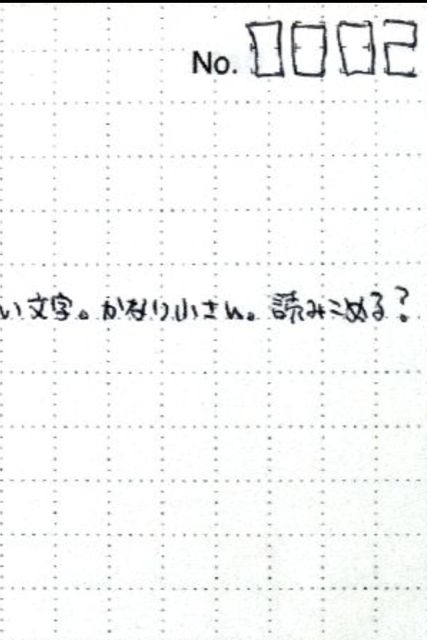 No. 0002
い文字。かなり小さい。読みこめる?